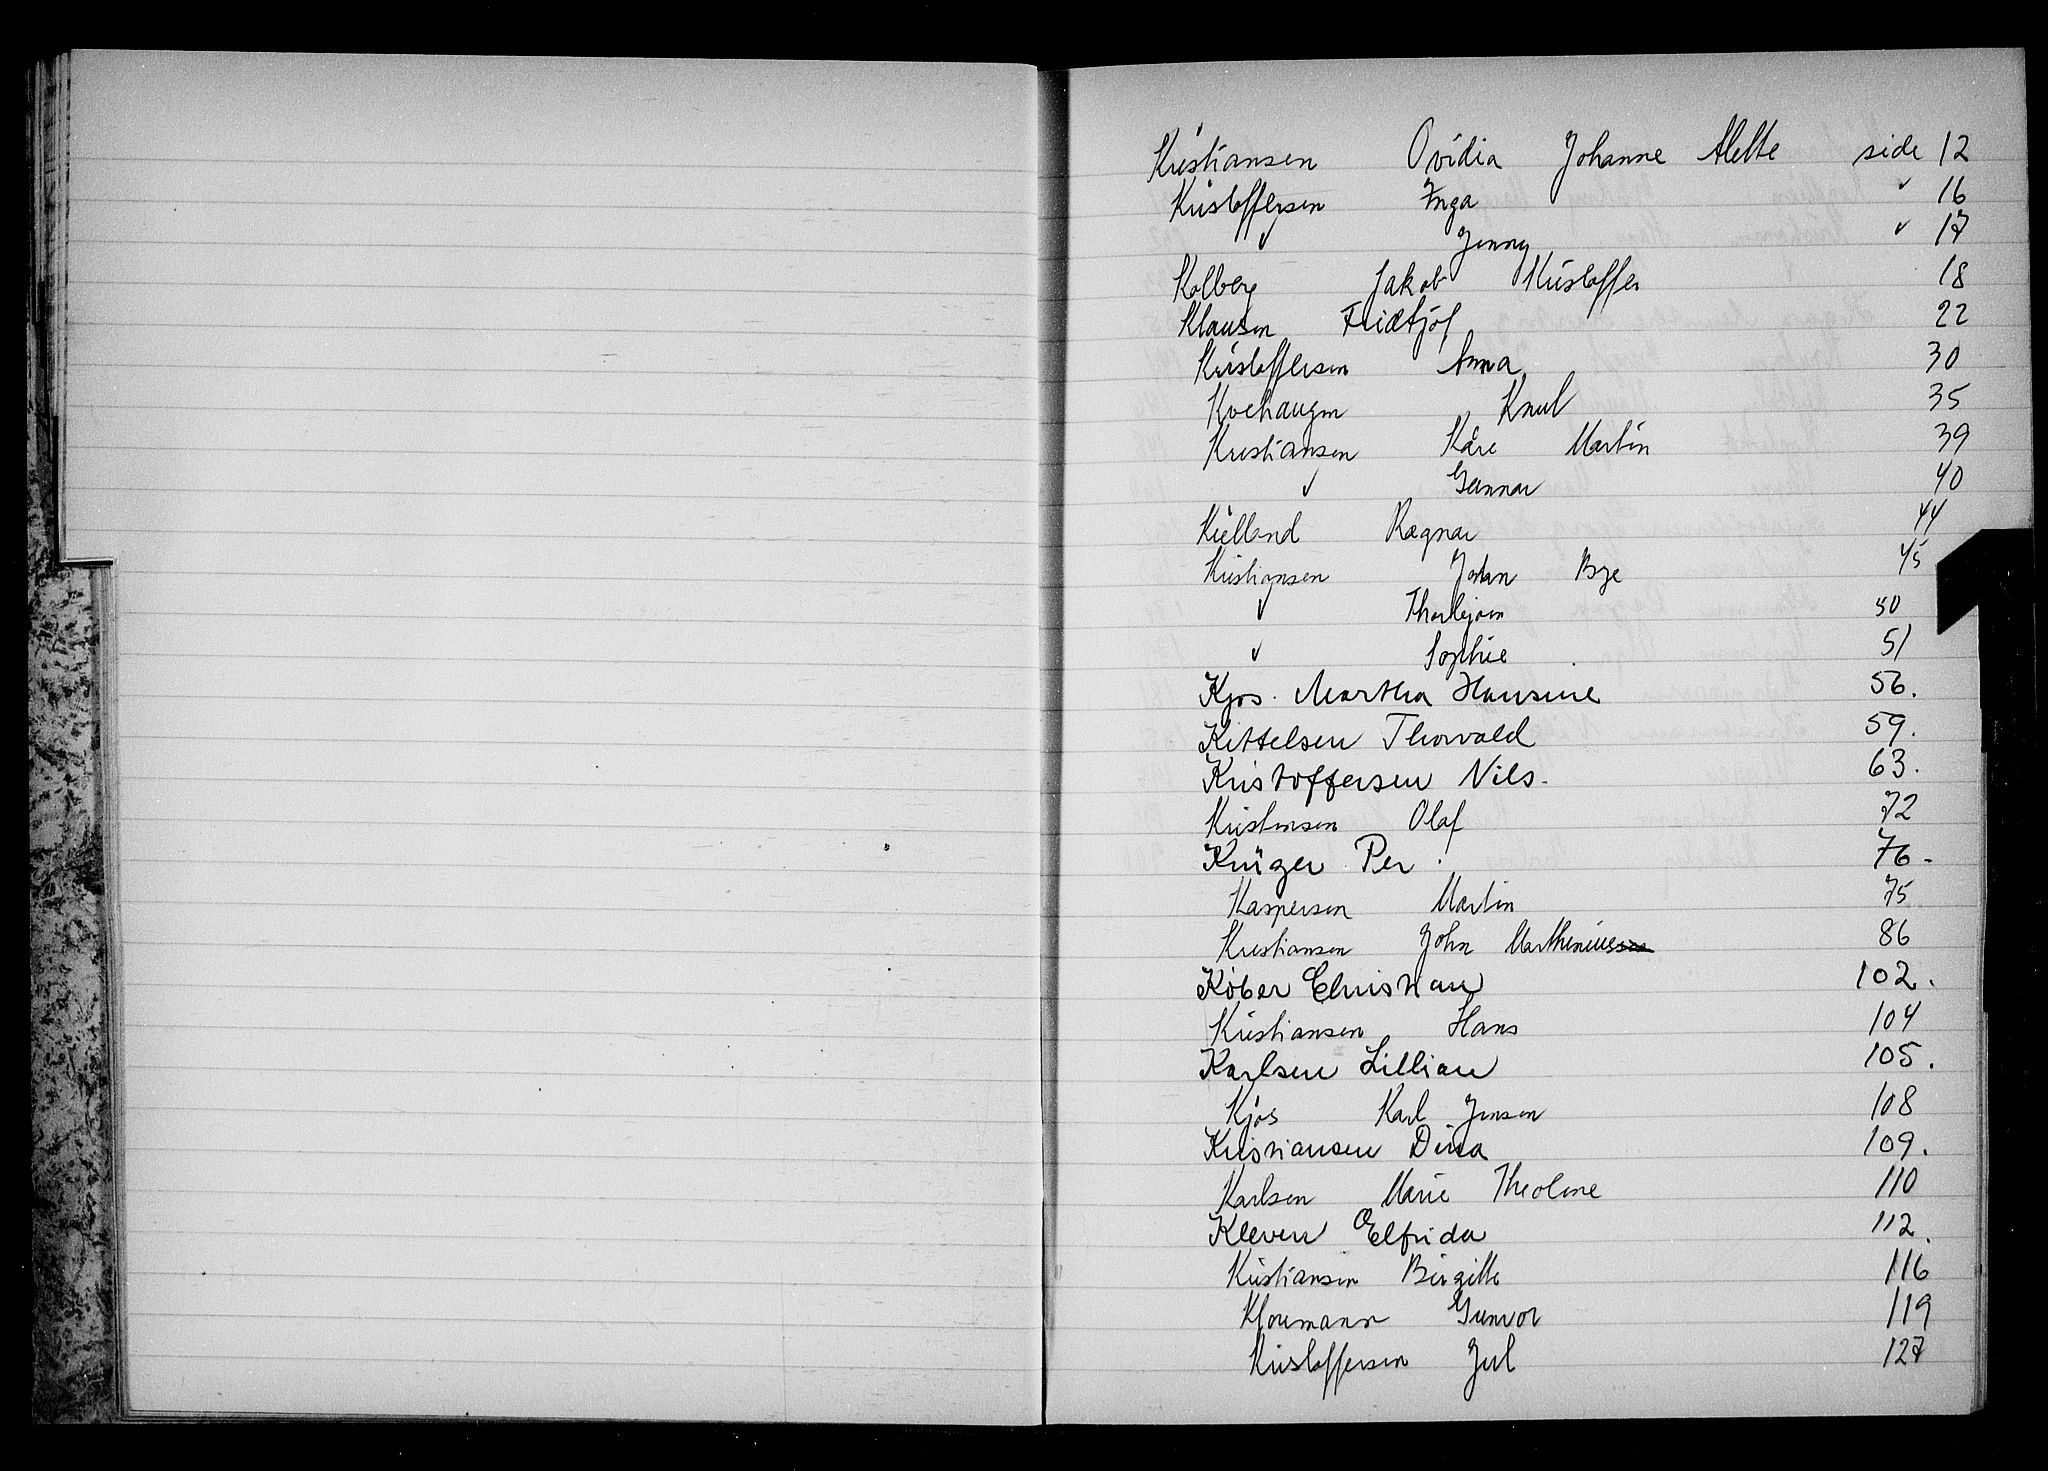 Kristiansen Ovidia Johanne Alette side 12
Kristoffersen Inga " 16
" Jenny " 17
Kolberg Jakob Kristoffer 18
Klausen Fridtjof 22
Kristoffersen Anna 30
Knut 35
Kristiansen Kåre Martin 39
" Gunnar 40
Kielland Ragnar 44
Kristiansen Johan Bye 45
" Thorbjørn 50
" Sophie 51
Kjos. Martha Hansine 56.
Kittelsen Thorvald 59.
Kristoffersen Nils. 63.
Kristensen Olaf 72
Krüger Per. 76.
Kaspersen Martin 75
Kristiansen John Marthinius 86
Köber Christian 102.
Kristiansen Hans 104
Karlsen Lillian 105.
Kjøs Karl Jensen 108
Kristiansen Dina 109.
Karlsen Marie Theoline 110
Kleven Elfrida 112.
Kristiansen Birgitte 116
Kloumann Gunvor 119
Kristoffersen Juul 127